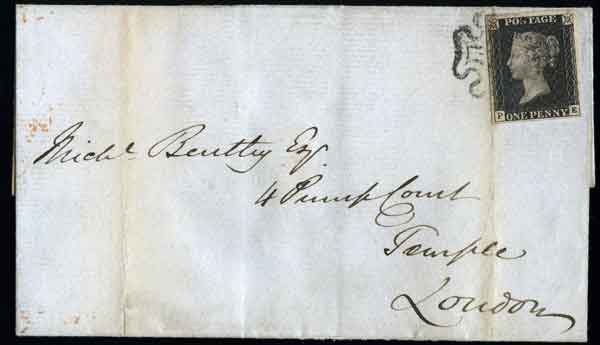 POSTAGE
ONE PENNY
P E
Mich.l Bentley Esq.
4 Pump Court
Temple
London